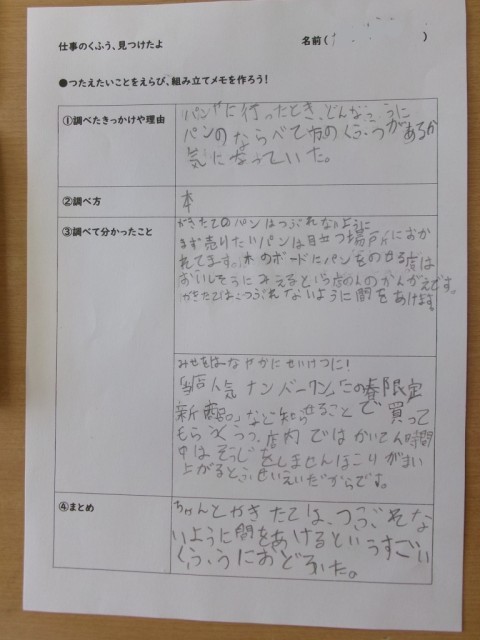 仕事のくふう、見つけたよ
名前( )
●つたえたいことをえらび、組み立てメモを作ろう!
①調べたきっかけや理由
パンやに行ったとき、どんなふうに
パンのならべて方のくふうがあるか
気になっていた。
②調べ方
本
③調べて分かったこと
やきたてのパンはつぶれないように
まず売りたいパンは目立つ場所におか
れてます。木のボードにパンをのせる店は
おいしそうにみえるという店の人のかんがえです。
やきたてはつぶれないように間をあけます。
みせをはなやかにせいけつに!
「当店人気ナンバーワン」「この春限定
新商品。」など知らせることで買って
もらうくふう。店内ではかいてん時間
中はそうじをしませんほこりがまい
上がるとふせいけいだからです。
④まとめ
ちゃんとやきたては、つぶれな
いように間をあけるというすごい
くふうにおどろいた。